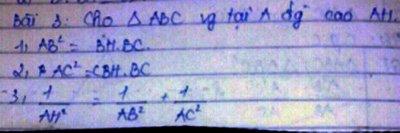 Bài 3: Cho △ ABC vg tại A đg cao AH.
1, AB² = BH.BC.
2, AC² = CBH.BC
3, 1/AH² = 1/AB² + 1/AC²